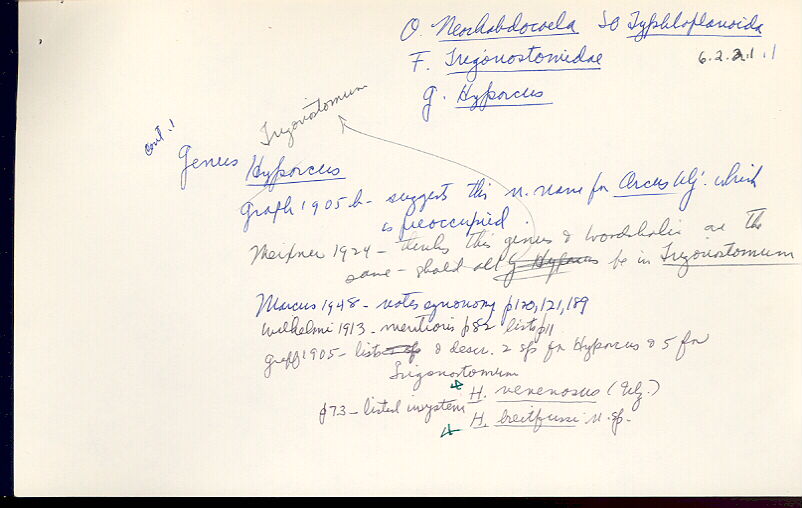 O. Neorhabdocoela SO Typhloplanoida
F. Trigonostomidae 6.2.2.1.1
G. Hyporcus
Trigonostomum
cont.!
Genus Hyporcus
Graff 1905b - suggests this n. name for Orcus Ulj. which
is preoccupied
Meixner 1924 - thinks this genus & Woodsholia are the
same - should all be in Trigonostomum
Marcus 1948 - notes synonomy p120, 121, 189
Wilhelmi 1913 - mentions p82 lists p11
Graff 1905 - lists & descr. 2 sp for Hyporcus & 5 for
Trigonostomum
H. venenosus (Ulj.)
p73 - listed in system
H. breitfussi n. sp.